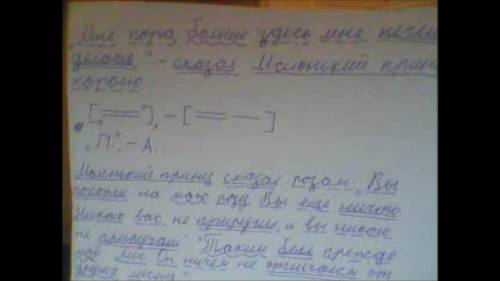 „Мне пора, больше здесь мне нечего
делать," - сказал Маленький принц
королю
„[══"], - [══ —]
„П", - А.
Маленький принц сказал розам: „Вы
похожи на мою розу Вы ещё ничто
Никто вас не приручил, и вы никого
не приручали. "Таким был прежде
мой Лис Он ничем не отличался от
других лисиц"